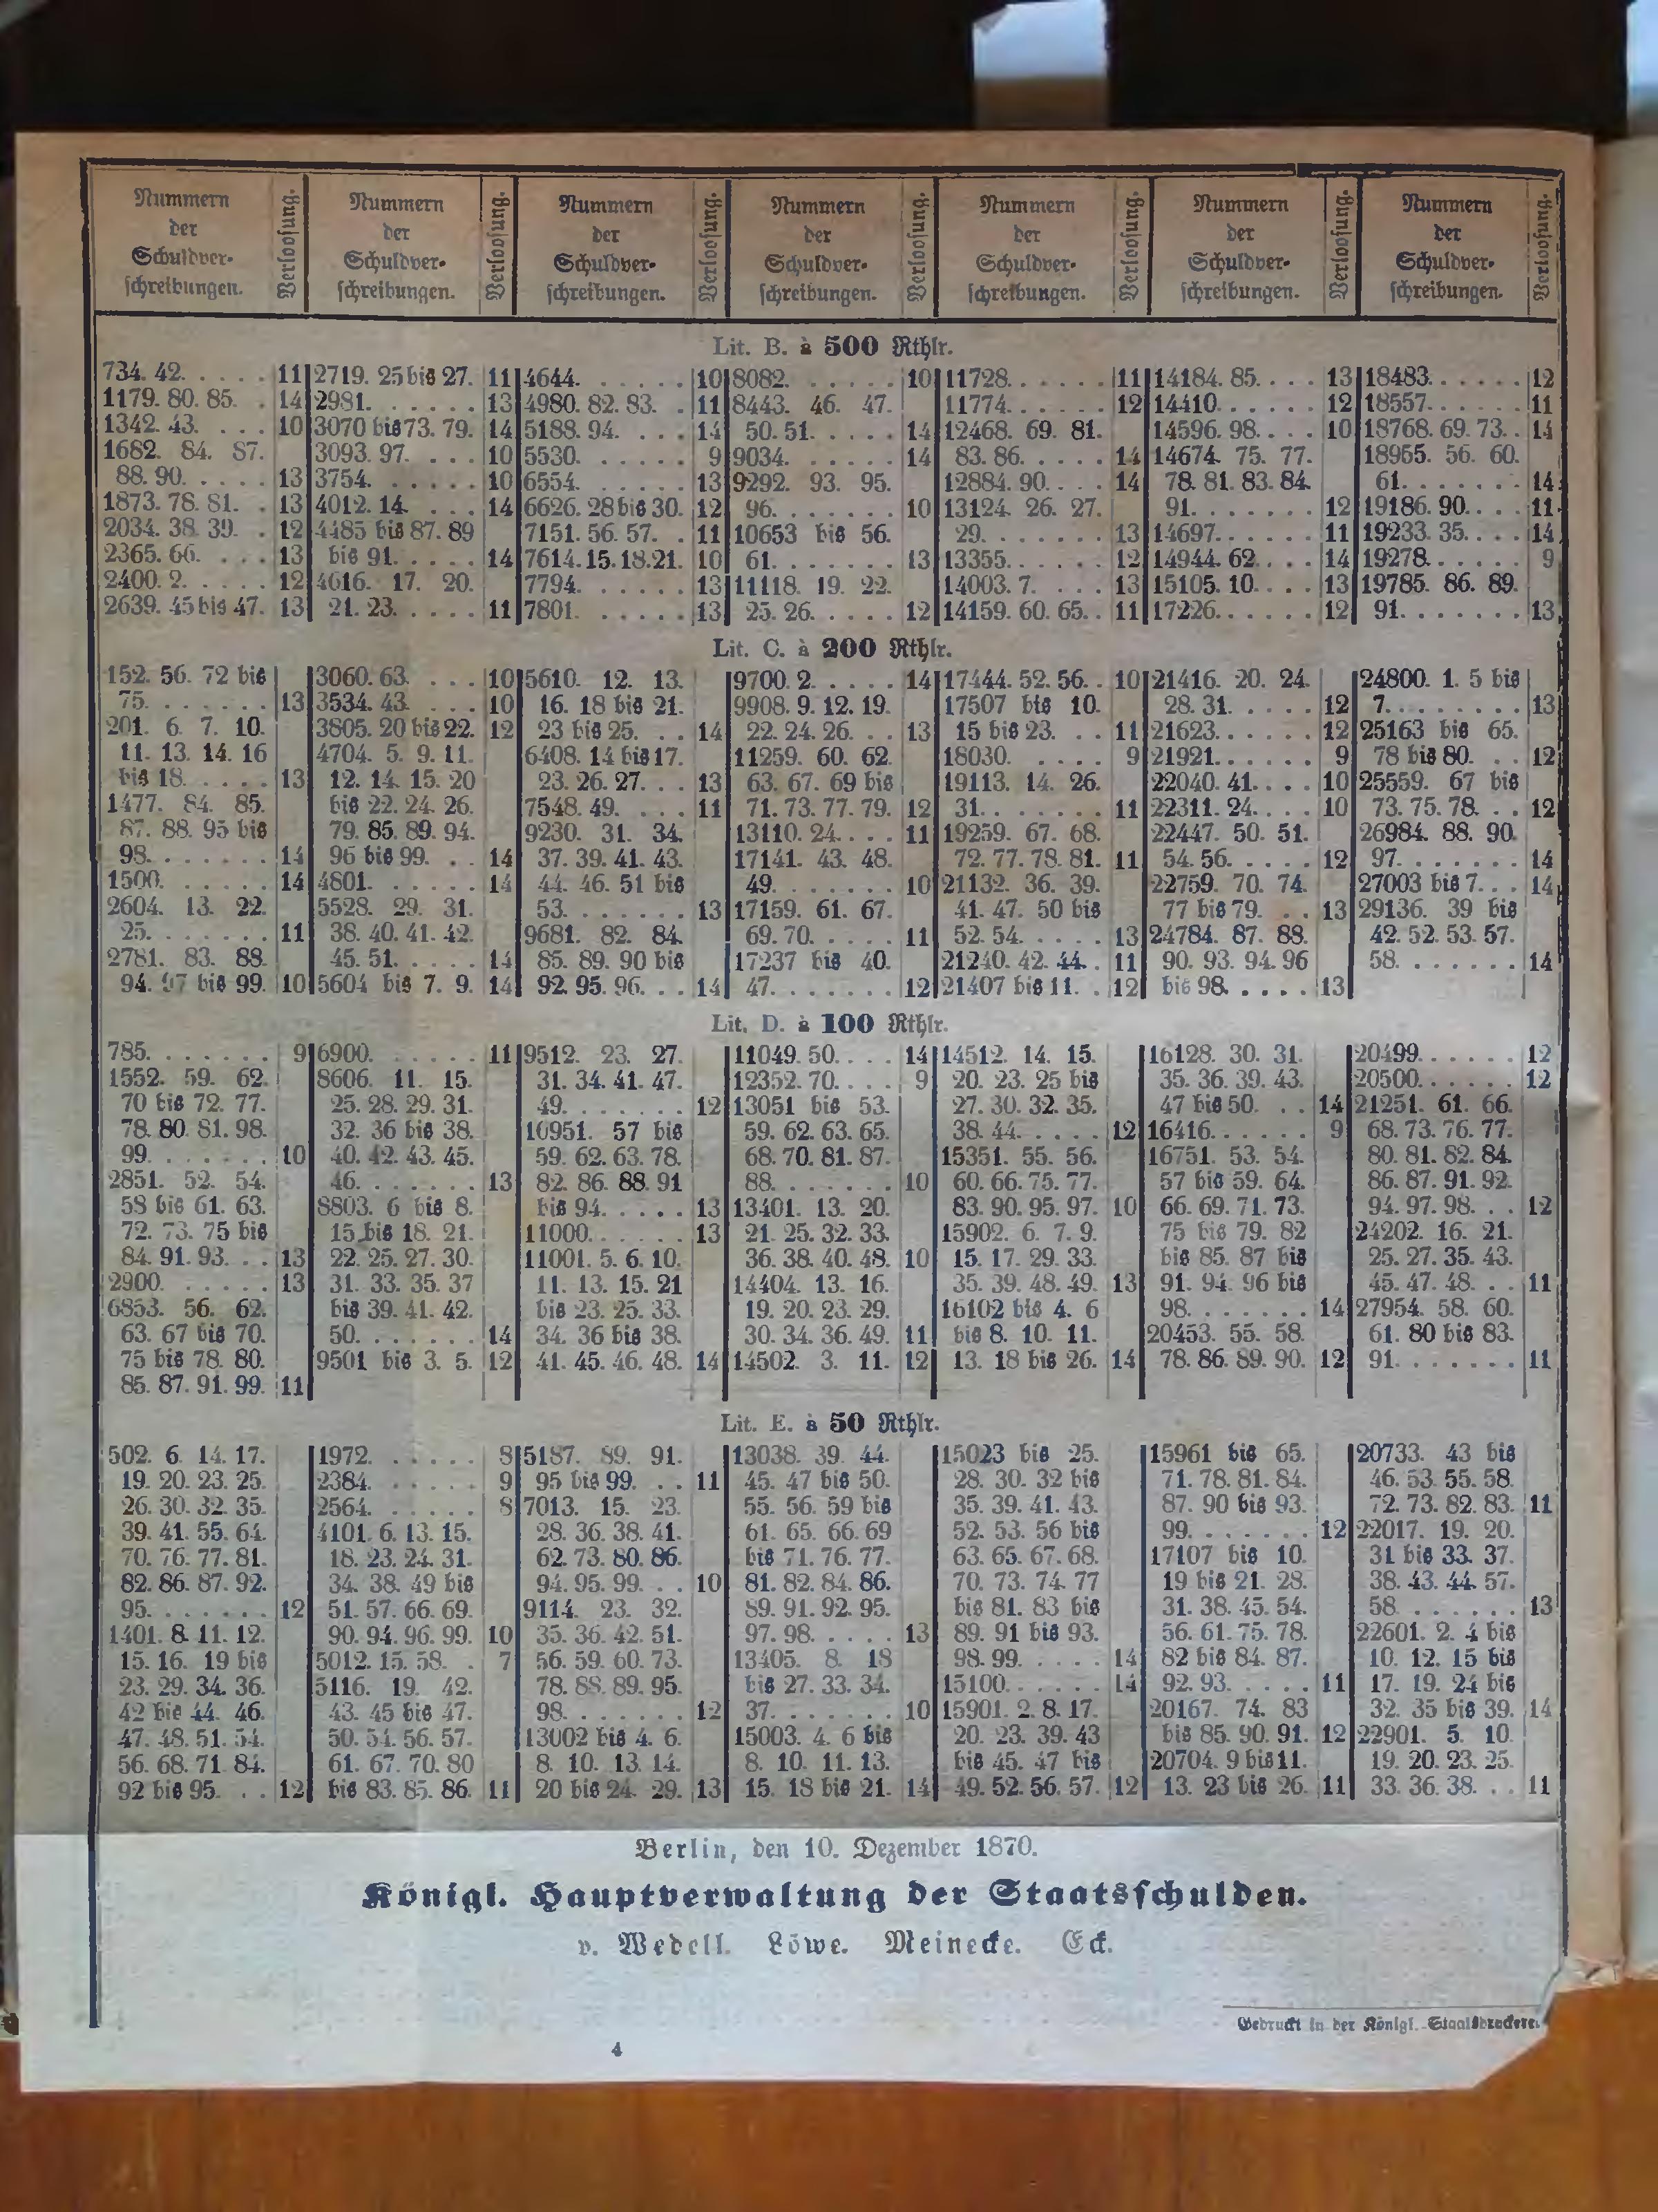 Nummern der Schuldver- schreibungen. Verloosung. Nummern der Schuldver- schreibungen. Verloosung. Nummern der Schuldver- schreibungen. Verloosung. Nummern der Schuldver- schreibungen. Verloosung. Nummern der Schuldver- schreibungen. Verloosung. Nummern der Schuldver- schreibungen. Verloosung. Nummern der Schuldver- schreibungen. Verloosung.
Lit. B. à 500 Rthlr.
734. 42. . . . . 11
1179. 80. 85. . 14
1342. 43. . . . 10
1682. 84. 87.
88. 90. . . . . 13
1873. 78. 81. . 13
2034. 38. 39. . 12
2365. 66. . . . 13
2400. 2. . . . . 12
2639. 45 bis 47. 13
2719. 25 bis 27. 11
2981. . . . . . . 13
3070 bis 73. 79. 14
3093. 97. . . . 10
3754. . . . . . 10
4012. 14. . . . 14
4485 bis 87. 89
bis 91. . . . . 14
4616. 17. 20.
21. 23. . . . . 11
4644. . . . . . 10
4980. 82. 83. . 11
5188. 94. . . . 14
5530. . . . . . 9
6554. . . . . . 13
6626. 28 bis 30. 12
7151. 56. 57. . 11
7614. 15. 18. 21. 10
7794. . . . . . 13
7801. . . . . . 13
8082. . . . . . 10
8443. 46. 47.
50. 51. . . . . 14
9034. . . . . . 14
9292. 93. 95.
96. . . . . . . 10
10653 bis 56.
61. . . . . . . 13
11118. 19. 22.
25. 26. . . . . 12
11728. . . . . . 11
11774. . . . . . 12
12468. 69. 81.
83. 86. . . . . 14
12884. 90. . . . 14
13124. 26. 27.
29. . . . . . . 13
13355. . . . . . 12
14003. 7. . . . 13
14159. 60. 65. . 11
14184. 85. . . . 13
14410. . . . . . 12
14596. 98. . . . 10
14674. 75. 77.
78. 81. 83. 84.
91. . . . . . . 12
14697. . . . . . 11
14944. 62. . . . 14
15105. 10. . . . 13
17226. . . . . . 12
18483. . . . . . 12
18557. . . . . . 11
18768. 69. 73. . 14
18955. 56. 60.
61. . . . . . . 14
19186. 90. . . . 11
19233. 35. . . . 14
19278. . . . . . 9
19785. 86. 89.
91. . . . . . . 13
Lit. C. à 200 Rthlr.
152. 56. 72 bis
75. . . . . . . 13
201. 6. 7. 10.
11. 13. 14. 16
bis 18. . . . . 13
1477. 84. 85.
87. 88. 95 bis
98. . . . . . . 14
1500. . . . . . 14
2604. 13. 22.
25. . . . . . . 11
2781. 83. 88.
94. 97 bis 99. 10
3060. 63. . . . 10
3534. 43. . . . 10
3805. 20 bis 22. 12
4704. 5. 9. 11.
12. 14. 15. 20
bis 22. 24. 26.
79. 85. 89. 94.
96 bis 99. . . 14
4801. . . . . . 14
5528. 29. 31.
38. 40. 41. 42.
45. 51. . . . . 14
5604 bis 7. 9. 14
5610. 12. 13.
16. 18 bis 21.
23 bis 25. . . 14
6408. 14 bis 17.
23. 26. 27. . . 13
7548. 49. . . . 11
9230. 31. 34.
37. 39. 41. 43.
44. 46. 51 bis
53. . . . . . . 13
9681. 82. 84.
85. 89. 90 bis
92. 95. 96. . . 14
9700. 2. . . . . 14
9908. 9. 12. 19.
22. 24. 26. . . 13
11259. 60. 62.
63. 67. 69 bis
71. 73. 77. 79. 12
13110. 24. . . . 11
17141. 43. 48.
49. . . . . . . 10
17159. 61. 67.
69. 70. . . . . 11
17237 bis 40.
47. . . . . . . 12
17444. 52. 56. . 10
17507 bis 10.
15 bis 23. . . 11
18030. . . . . 9
19113. 14. 26.
31. . . . . . . 11
19259. 67. 68.
72. 77. 78. 81. 11
21132. 36. 39.
41. 47. 50 bis
52. 54. . . . . 13
21240. 42. 44. . 11
21407 bis 11. . 12
21416. 20. 24.
28. 31. . . . . 12
21623. . . . . . 12
21921. . . . . . 9
22040. 41. . . . 10
22311. 24. . . . 10
22447. 50. 51.
54. 56. . . . . 12
22759. 70. 74.
77 bis 79. . . 13
24784. 87. 88.
90. 93. 94. 96
bis 98. . . . . 13
24800. 1. 5 bis
7. . . . . . . . 13
25163 bis 65.
78 bis 80. . . 12
25559. 67 bis
73. 75. 78. . . 12
26984. 88. 90.
97. . . . . . . 14
27003 bis 7. . . 14
29136. 39 bis
42. 52. 53. 57.
58. . . . . . . 14
Lit. D. à 100 Rthlr.
785. . . . . . . 9
1552. 59. 62.
70 bis 72. 77.
78. 80. 81. 98.
99. . . . . . . 10
2851. 52. 54.
58 bis 61. 63.
72. 73. 75 bis
84. 91. 93. . . 13
2900. . . . . . 13
6853. 56. 62.
63. 67 bis 70.
75 bis 78. 80.
85. 87. 91. 99. 11
6900. . . . . . 11
8606. 11. 15.
25. 28. 29. 31.
32. 36 bis 38.
40. 42. 43. 45.
46. . . . . . . 13
8803. 6 bis 8.
15 bis 18. 21.
22. 25. 27. 30.
31. 33. 35. 37
bis 39. 41. 42.
50. . . . . . . 14
9501 bis 3. 5. 12
9512. 23. 27.
31. 34. 41. 47.
49. . . . . . . 12
10951. 57 bis
59. 62. 63. 78.
82. 86. 88. 91
bis 94. . . . . 13
11000. . . . . . 13
11001. 5. 6. 10.
11. 13. 15. 21
bis 23. 25. 33.
34. 36 bis 38.
41. 45. 46. 48. 14
11049. 50. . . . 14
12352. 70. . . . 9
13051 bis 53.
59. 62. 63. 65.
68. 70. 81. 87.
88. . . . . . . 10
13401. 13. 20.
21. 25. 32. 33.
36. 38. 40. 48. 10
14404. 13. 16.
19. 20. 23. 29.
30. 34. 36. 49. 11
14502. 3. 11. 12
14512. 14. 15.
20. 23. 25 bis
27. 30. 32. 35.
38. 44. . . . . 12
15351. 55. 56.
60. 66. 75. 77.
83. 90. 95. 97. 10
15902. 6. 7. 9.
15. 17. 29. 33.
35. 39. 48. 49. 13
16102 bis 4. 6
bis 8. 10. 11.
13. 18 bis 26. 14
16128. 30. 31.
35. 36. 39. 43.
47 bis 50. . . 14
16416. . . . . . 9
16751. 53. 54.
57 bis 59. 64.
66. 69. 71. 73.
75 bis 79. 82
bis 85. 87 bis
91. 94. 96 bis
98. . . . . . . 14
20453. 55. 58.
78. 86. 89. 90. 12
20499. . . . . . 12
20500. . . . . . 12
21251. 61. 66.
68. 73. 76. 77.
80. 81. 82. 84.
86. 87. 91. 92.
94. 97. 98. . . 12
24202. 16. 21.
25. 27. 35. 43.
45. 47. 48. . . 11
27954. 58. 60.
61. 80 bis 83.
91. . . . . . . 11
Lit. E. à 50 Rthlr.
502. 6. 14. 17.
19. 20. 23. 25.
26. 30. 32. 35.
39. 41. 55. 64.
70. 76. 77. 81.
82. 86. 87. 92.
95. . . . . . . 12
1401. 8. 11. 12.
15. 16. 19 bis
23. 29. 34. 36.
42 bis 44. 46.
47. 48. 51. 54.
56. 68. 71. 84.
92 bis 95. . . 12
1972. . . . . . 8
2384. . . . . . 9
2564. . . . . . 8
4101. 6. 13. 15.
18. 23. 24. 31.
34. 38. 49 bis
51. 57. 66. 69.
90. 94. 96. 99. 10
5012. 15. 58. . 7
5116. 19. 42.
43. 45 bis 47.
50. 54. 56. 57.
61. 67. 70. 80
bis 83. 85. 86. 11
5187. 89. 91.
95 bis 99. . . 11
7013. 15. 23.
28. 36. 38. 41.
62. 73. 80. 86.
94. 95. 99. . . 10
9114. 23. 32.
35. 36. 42. 51.
56. 59. 60. 73.
78. 88. 89. 95.
98. . . . . . . 12
13002 bis 4. 6.
8. 10. 13. 14.
20 bis 24. 29. 13
13038. 39. 44.
45. 47 bis 50.
55. 56. 59 bis
61. 65. 66. 69
bis 71. 76. 77.
81. 82. 84. 86.
89. 91. 92. 95.
97. 98. . . . . 13
13405. 8. 18
bis 27. 33. 34.
37. . . . . . . 10
15003. 4. 6 bis
8. 10. 11. 13.
15. 18 bis 21. 14
15023 bis 25.
28. 30. 32 bis
35. 39. 41. 43.
52. 53. 56 bis
63. 65. 67. 68.
70. 73. 74. 77
bis 81. 83 bis
89. 91 bis 93.
98. 99. . . . . 14
15100. . . . . . 14
15901. 2. 8. 17.
20. 23. 39. 43
bis 45. 47 bis
49. 52. 56. 57. 12
15961 bis 65.
71. 78. 81. 84.
87. 90 bis 93.
99. . . . . . . 12
17107 bis 10.
19 bis 21. 28.
31. 38. 45. 54.
56. 61. 75. 78.
82 bis 84. 87.
92. 93. . . . . 11
20167. 74. 83
bis 85. 90. 91. 12
20704. 9 bis 11.
13. 23 bis 26. 11
20733. 43 bis
46. 53. 55. 58.
72. 73. 82. 83. 11
22017. 19. 20.
31 bis 33. 37.
38. 43. 44. 57.
58. . . . . . . 13
22601. 2. 4 bis
10. 12. 15 bis
17. 19. 24 bis
32. 35 bis 39. 14
22901. 5. 10.
19. 20. 23. 25.
33. 36. 38. . . 11
Berlin, den 10. Dezember 1870.
Königl. Hauptverwaltung der Staatsschulden.
v. Wedell. Löwe. Meinecke. Eck.
Gedruckt in der Königl.
4